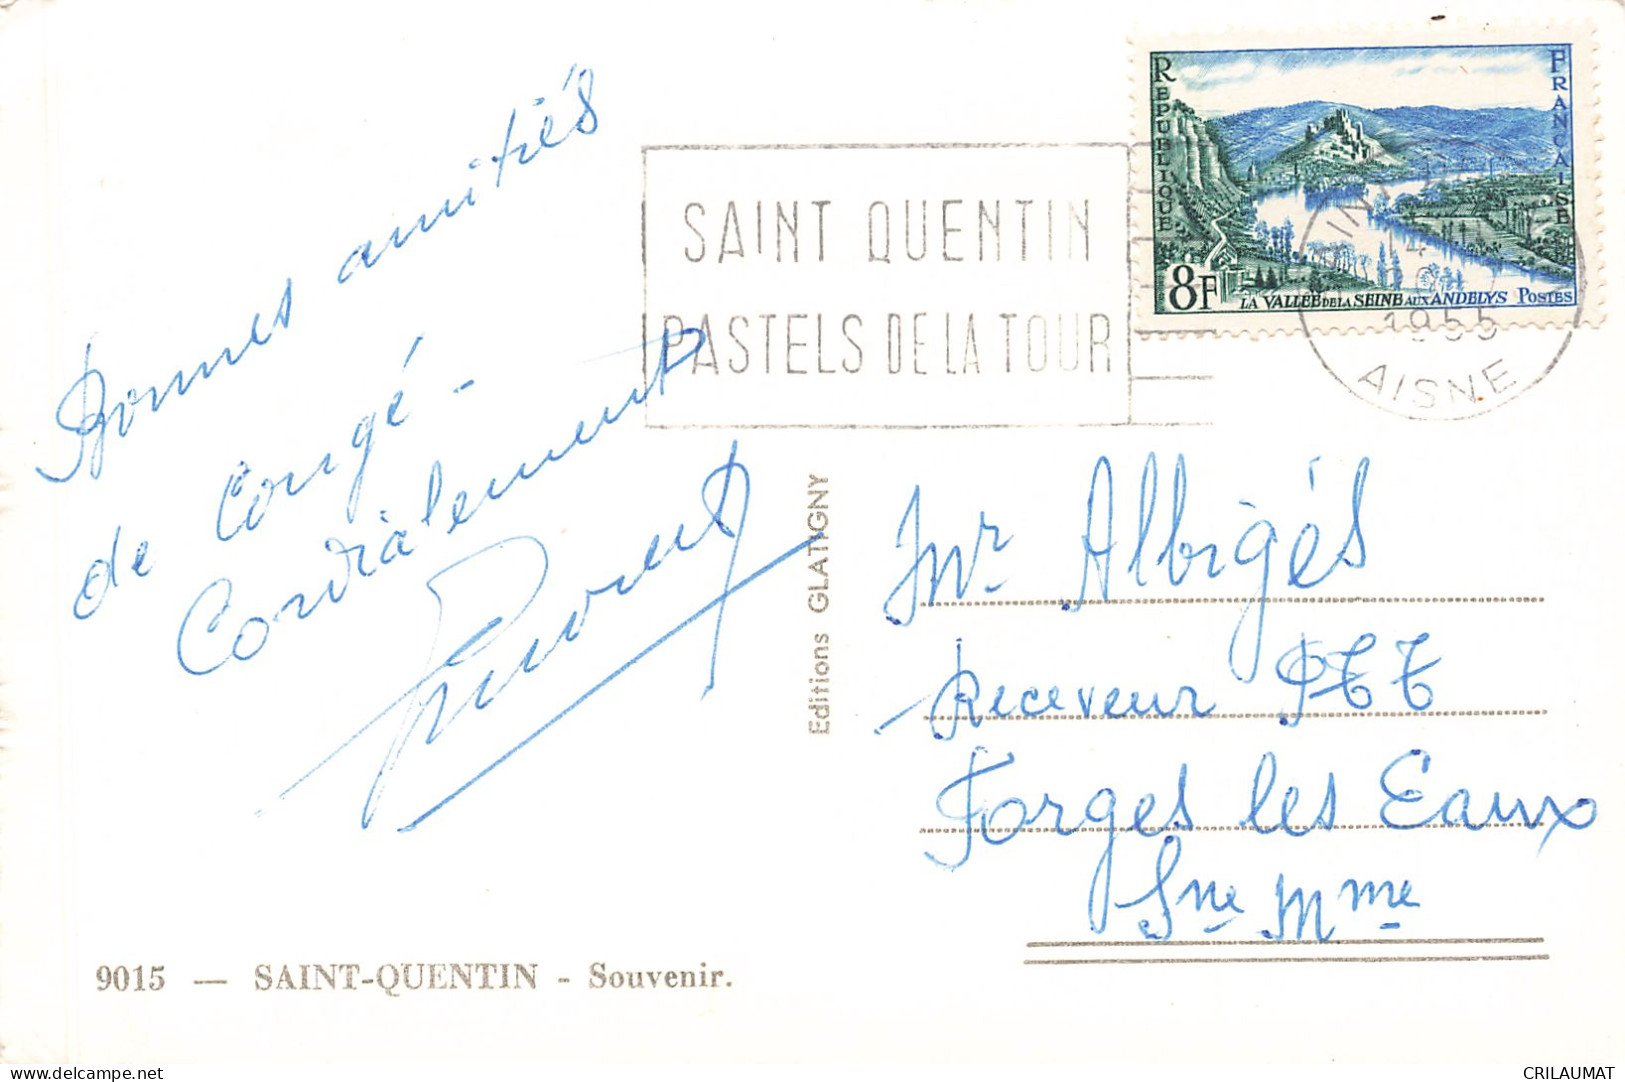 Bonnes amitiés
de Congé -
Cordialement
SAINT QUENTIN
PASTELS DE LA TOUR
REPUBLIQUE
FRANCAISE
8F
LA VALLÉE DE LA SEINE AUX ANDELYS POSTES
1955
AISNE
Editions GLATIGNY
Mr Albigés
Receveur PTT
Forges les Eaux
Sne Mme
9015 — SAINT-QUENTIN - Souvenir.
delcampe.net
CRILAUMAT